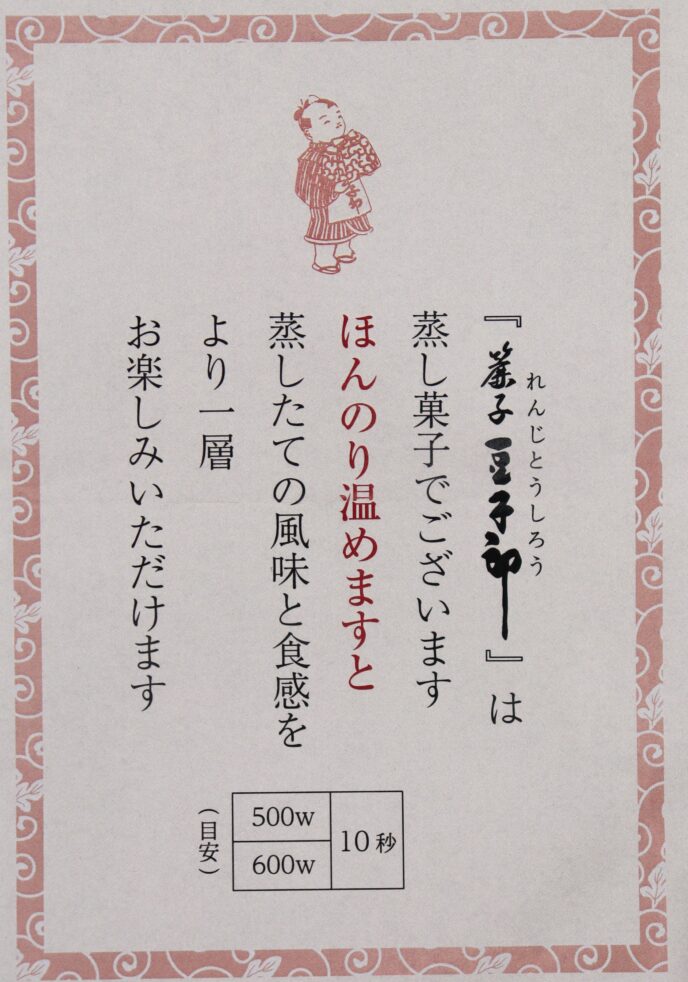 れんじとうしろう
『子 豆子郎』は
蒸し菓子でございます
ほんのり温めますと
蒸したての風味と食感を
より一層
お楽しみいただけます
500w
600w
10秒
(目安)